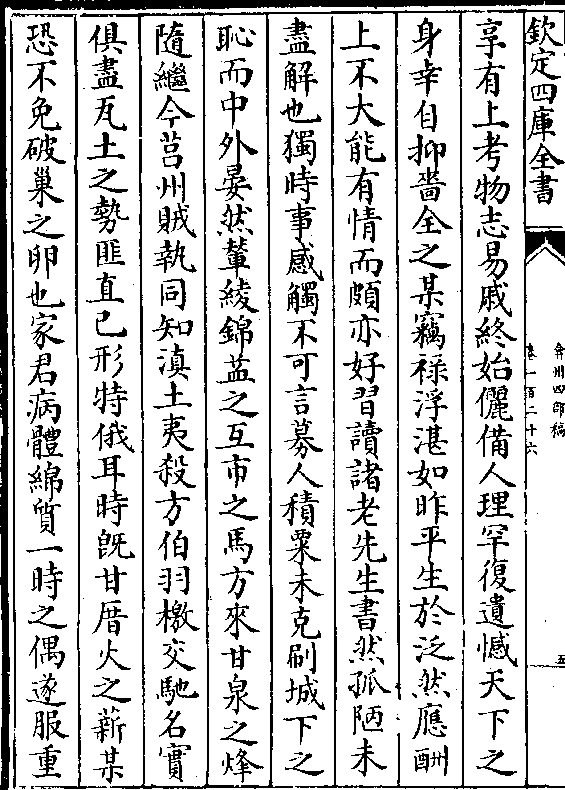 欽定四庫全書
弇州四部稿
卷一百二十六
五
享有上考物志易戚終始儷備人理罕復遺憾天下之
身幸自抑嗇全之某竊祿浮湛如昨平生於泛然應酬
上不大能有情而頗亦好習讀諸老先生書然孤陋未
盡解也獨時事感觸不可言募人積粟未克刷城下之
恥而中外晏然輦綾錦藍之互市之馬方來甘泉之烽
隨繼今莒州賊執同知滇土夷殺方伯羽檄交馳名實
俱盡瓦土之勢匪直已形特俄耳時旣甘厝火之薪某
恐不免破巢之卵也家君病體綿質一時之偶遂服重